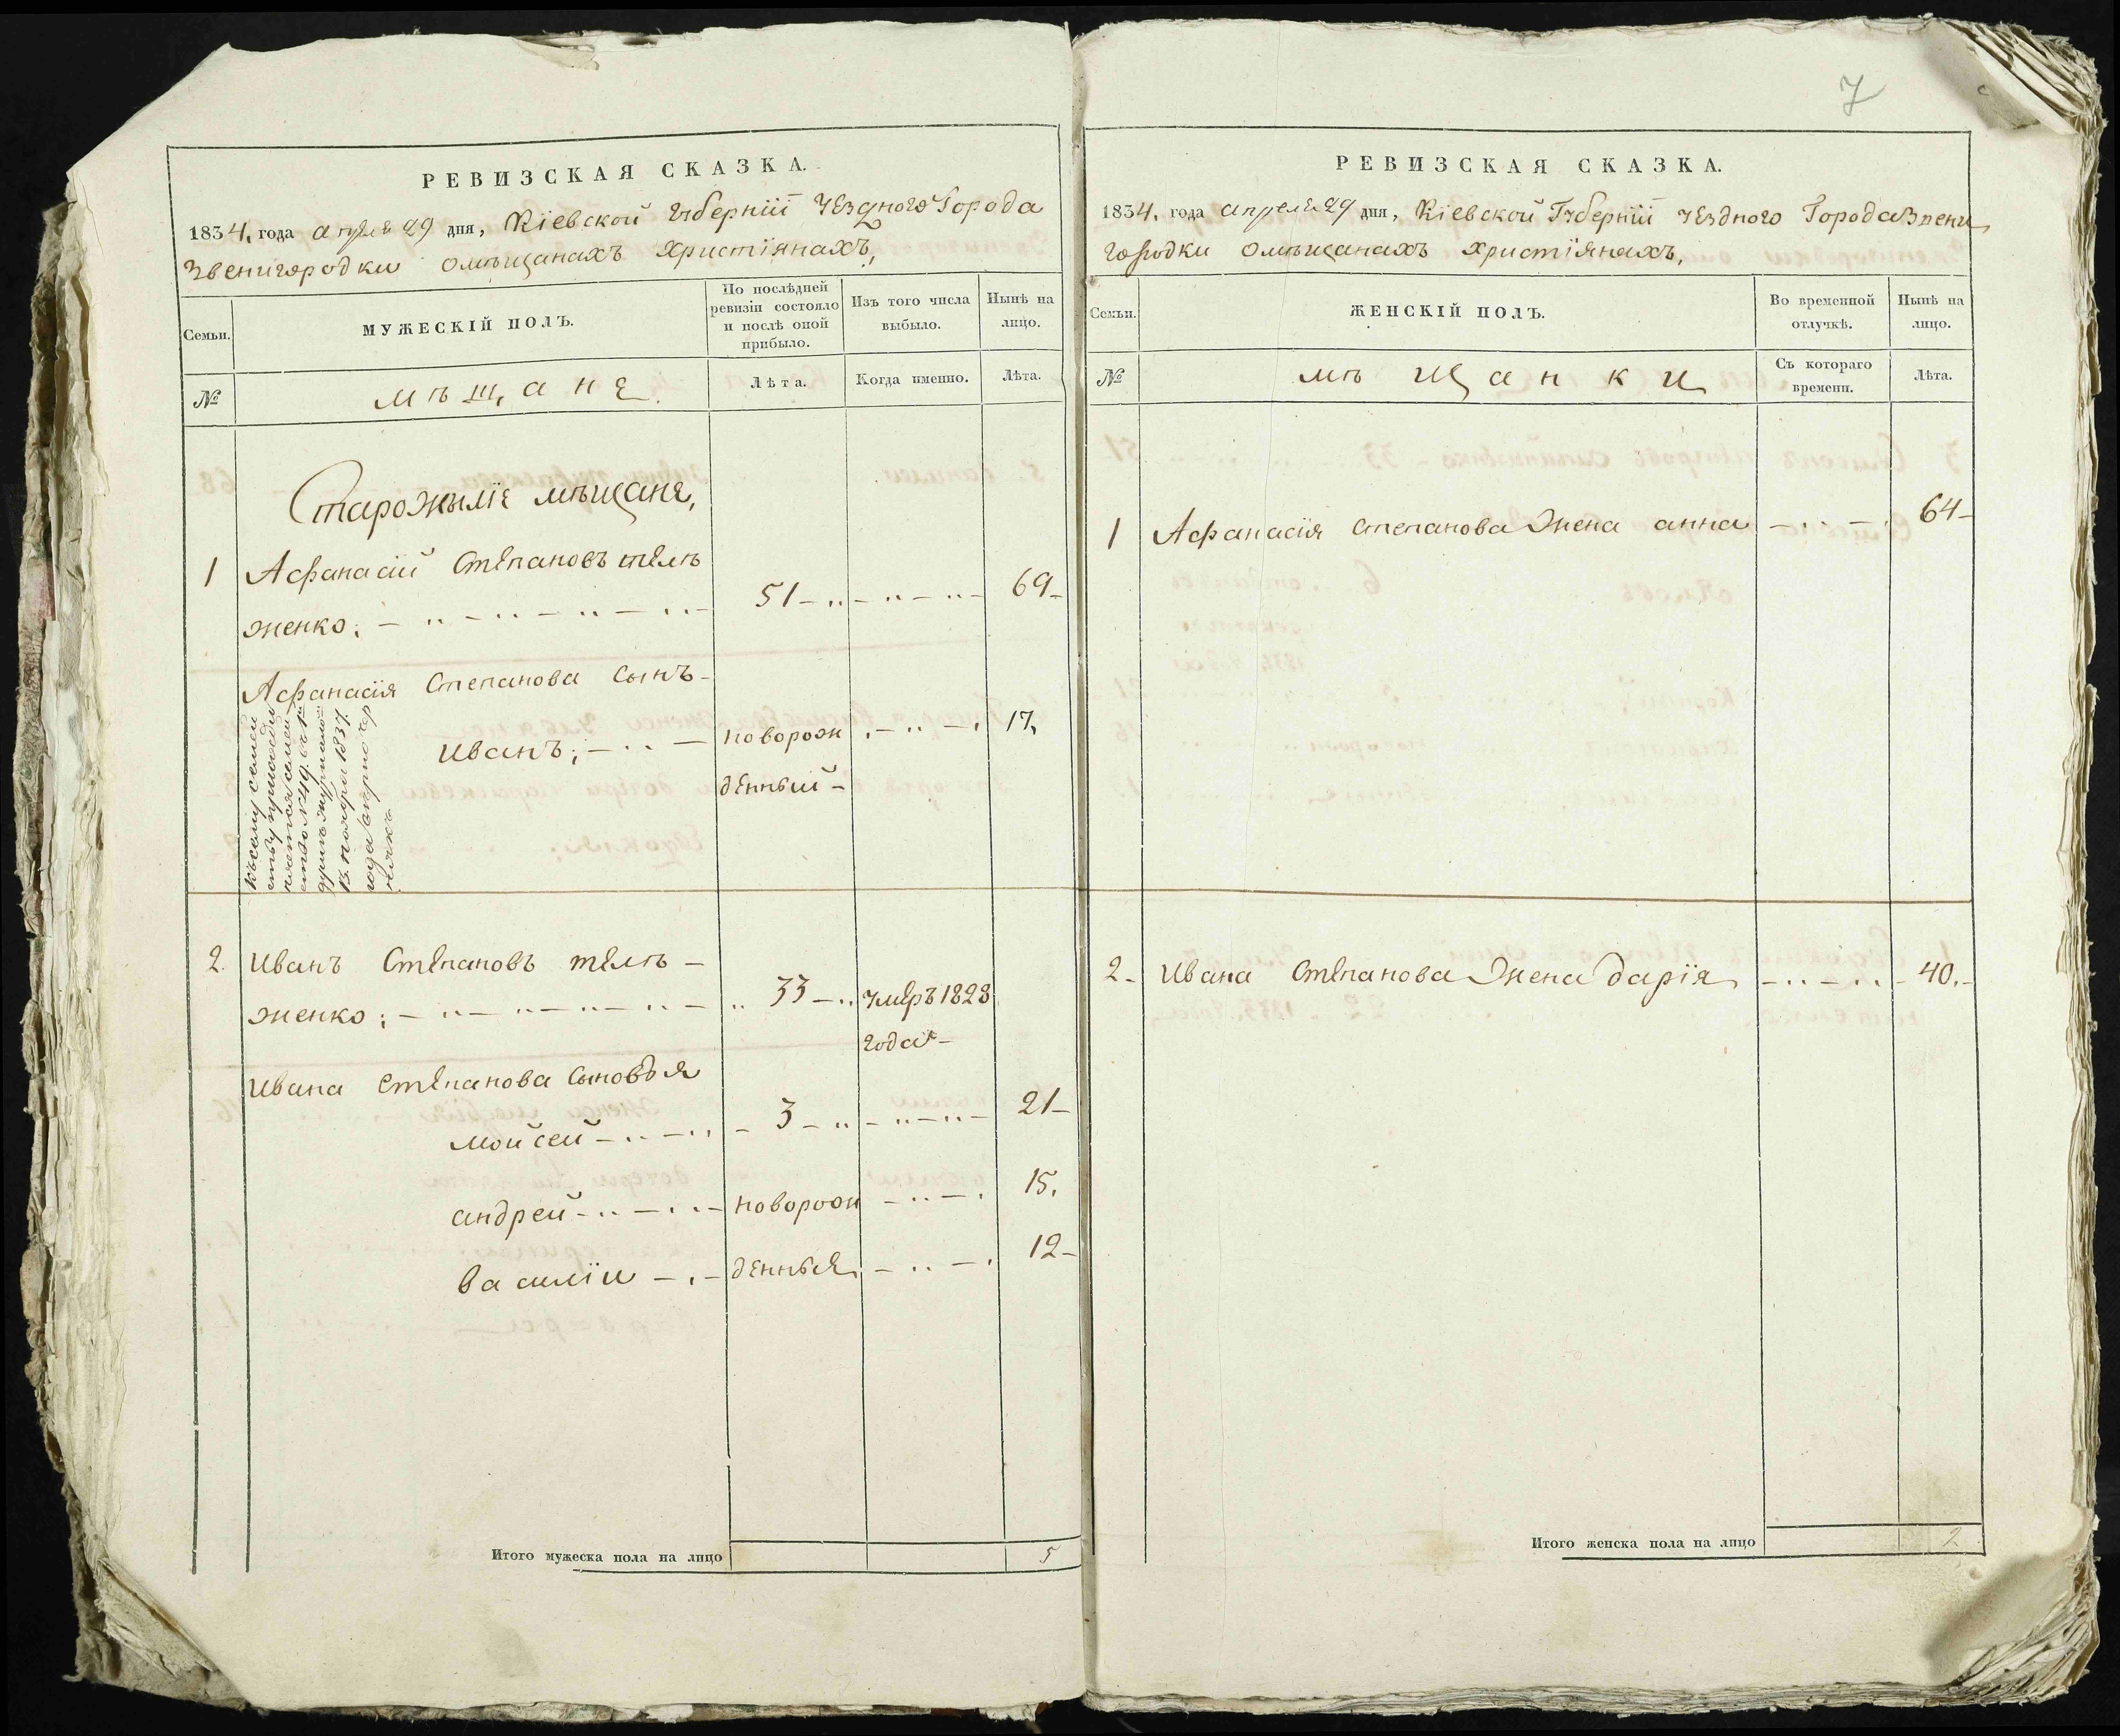 7
РЕВИЗСКАЯ СКАЗКА.
1834, года апреля 29 дня, Кіевской Губерніи Уезднаго Города
Звенигородки омѣщанахъ Христіянахъ,
Семьи.
МУЖЕСКІЙ ПОЛЪ.
По послѣдней
ревизіи состояло
и послѣ оной
прибыло.
Изъ того числа
выбыло.
Нынѣ на
лицо.
№
мѣщане
Лѣта.
Когда именно.
Лѣта.
Старожиліе мѣщане,
1 Афанасій Степановъ телѣ
женко; 51 69
Афанасія Степанова Сынъ
Иванъ; новорож 17,
денный
1837
2. Иванъ Степановъ телѣ
женко; 33 умеръ 1828
года
Ивана Степанова Сыновья
мойсей 3 21
андрей новорож 15,
василіи денныя 12
Итого мужеска пола на лицо 5
РЕВИЗСКАЯ СКАЗКА.
1834, года апреля 29 дня, Кіевской Губерніи уездного Города Звени
городки омѣщанахъ христіянахъ,
Семьи.
ЖЕНСКІЙ ПОЛЪ.
Во временной
отлучкѣ.
Нынѣ на
лицо.
№
мѣщанки
Съ котораго
времени.
Лѣта.
1 Афанасія степанова Жена анна 64
2 Ивана Степанова Жена дарія 40
Итого женска пола на лицо 2